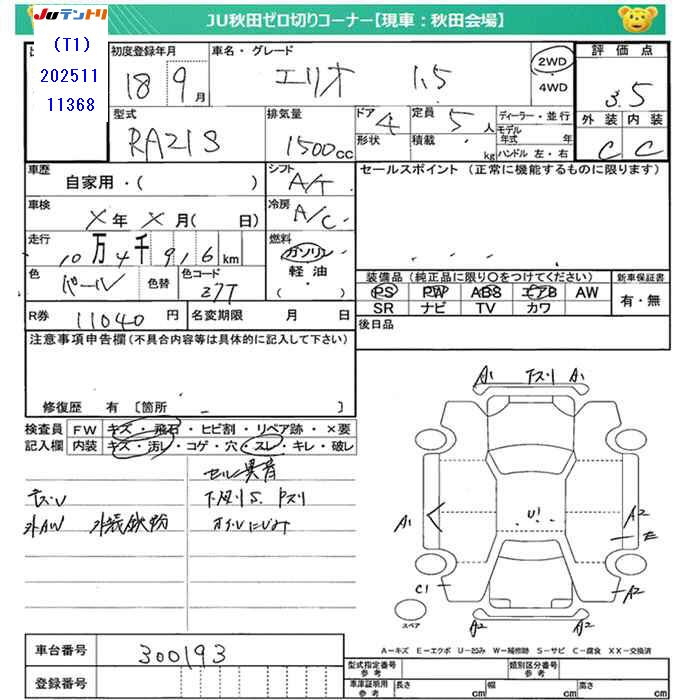 JUテントリ
JU秋田ゼロ切りコーナー【現車：秋田会場】
(T1)
202511
11368
初度登録年月
18 9月
車名・グレード
エリオ 1.5
2WD
4WD
評価点
3.5
外装 内装
C C
型式
RA21S
排気量
1500cc
ドア 4
形状
定員 5人
積載 kg
ディーラー・並行
モデル年式 年
ハンドル 左・右
車歴
自家用・( )
シフト
A/T
車検
X年X月( 日)
冷房
A/C
走行
10万4千916km
燃料
ガソリン
軽油・
( )
色
パール
色替
色コード
Z7T
R券 11040円
名変期限 月 日
セールスポイント (正常に機能するものに限ります)
装備品 (純正品に限り○をつけてください)
PS PW ABS エアB AW
SR ナビ TV カワ
新車保証書
有・無
後日品
注意事項申告欄(不具合内容等は具体的に記入して下さい)
修復歴 有 〔箇所 〕
検査員記入欄
FW キズ・飛石・ヒビ割・リペア跡・×要
内装 キズ・汚レ・コゲ・穴・スレ・キレ・破レ
セル異音
モズレ
下廻りS.
外AW 外装鉄粉
オイルにじみ
A1 下スリ A1
A1
U1
A2
E
C1
A2
A2 A2
スペア
A－キズ E－エクボ U－凹み W－補修跡 S－サビ C－腐食 XX－交換済
車台番号 300193
登録番号
型式指定番号
参考
類別区分番号
参考
車庫証明用
参考
長さ cm
幅 cm
高さ cm